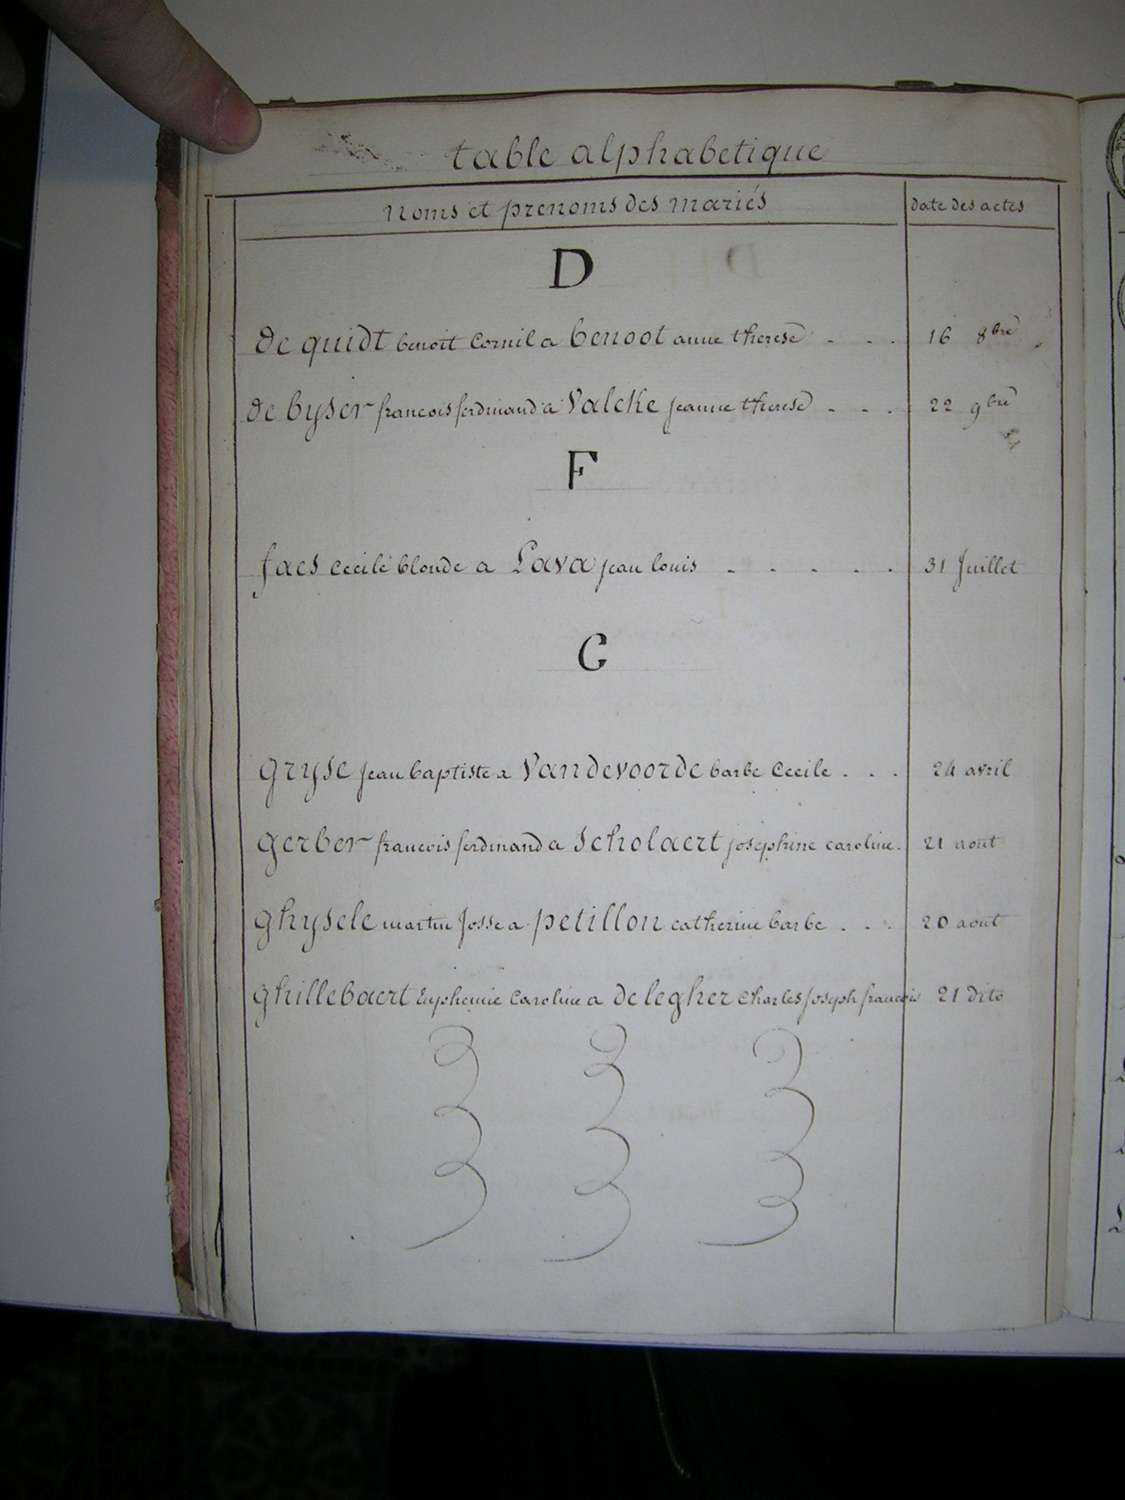 table alphabetique
noms et prenoms des mariés date des actes
D
de quidt benoit Cornil a benoot anne therese . . . 16 8bre
de byser francois ferdinand a Valcke jeanne therese . . . 22 9bre
F
faes Cecile blonde a Lava jean louis . . . . . 31 Juillet
G
gryse jean baptiste a Vandevoorde barbe Cecile . . . 24 avril
gerber francois ferdinand a Scholaert josephine caroline . 21 aout
ghysele martin Josse a petillon catherine barbe . . . 20 aout
ghillebaert Euphemie Caroline a de legher Charles Joseph francois 21 dito